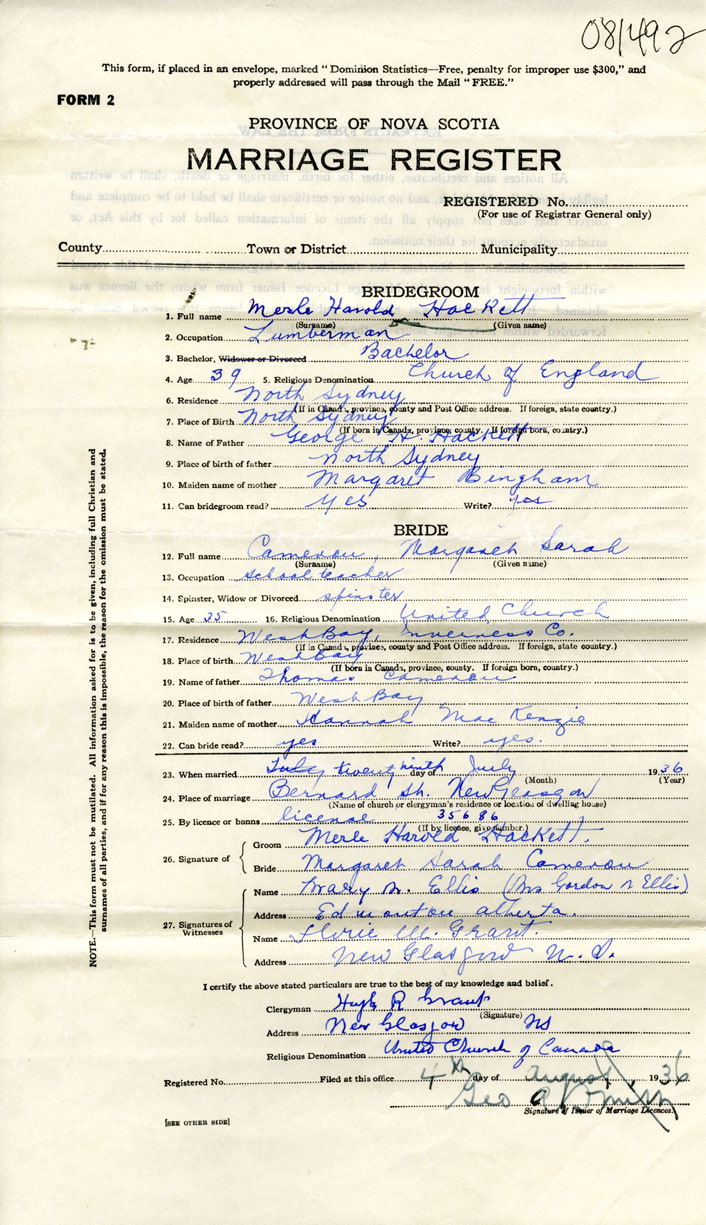 081492
This form, if placed in an envelope, marked "Dominion Statistics—Free, penalty for improper use $300," and
properly addressed will pass through the Mail "FREE."
FORM 2
PROVINCE OF NOVA SCOTIA
MARRIAGE REGISTER
REGISTERED No.
(For use of Registrar General only)
County Town or District Municipality
BRIDEGROOM
1. Full name Merle Harold Hackett
(Surname) (Given name)
2. Occupation Lumberman
3. Bachelor, Widower or Divorced Bachelor
4. Age 39 5. Religious Denomination Church of England
6. Residence North Sydney
(If in Canada, province, county and Post Office address. If foreign, state country.)
7. Place of Birth North Sydney
(If born in Canada, province, county. If foreign born, country.)
8. Name of Father George H. Hackett
9. Place of birth of father North Sydney
10. Maiden name of mother Margaret Bingham
11. Can bridegroom read? Yes Write? yes
BRIDE
12. Full name Cameron, Margaret Sarah
(Surname) (Given name)
13. Occupation school teacher
14. Spinster, Widow or Divorced spinster
15. Age 35 16. Religious Denomination United Church
17. Residence West Bay, Inverness Co.
(If in Canada, province, county and Post Office address. If foreign, state country.)
18. Place of birth West Bay
(If born in Canada, province, county. If foreign born, country.)
19. Name of father Thomas Cameron
20. Place of birth of father West Bay
21. Maiden name of mother Hannah MacKenzie
22. Can bride read? yes Write? yes.
23. When married July twenty ninth day of July 1936
(Month) (Year)
24. Place of marriage Bernard St. New Glasgow
(Name of church or clergyman's residence or location of dwelling house)
25. By licence or banns license 35686
(If by licence, give number.)
26. Signature of
Groom Merle Harold Hackett.
Bride Margaret Sarah Cameron
27. Signatures of Witnesses
Name Mary N. Ellis (Mrs Gordon N Ellis)
Address Edmonton Alberta.
Name Florie M. Grant.
Address New Glasgow N.S.
I certify the above stated particulars are true to the best of my knowledge and belief.
Clergyman Hugh R Grant
(Signature)
Address New Glasgow NS
Religious Denomination United Church of Canada
Registered No. Filed at this office 4th day of August, 1936
Geo
Signature of Issuer of Marriage Licences.
[SEE OTHER SIDE]
NOTE.—This form must not be mutilated. All information asked for is to be given, including full Christian and
surnames of all parties, and if for any reason this is impossible, the reason for the omission must be stated.